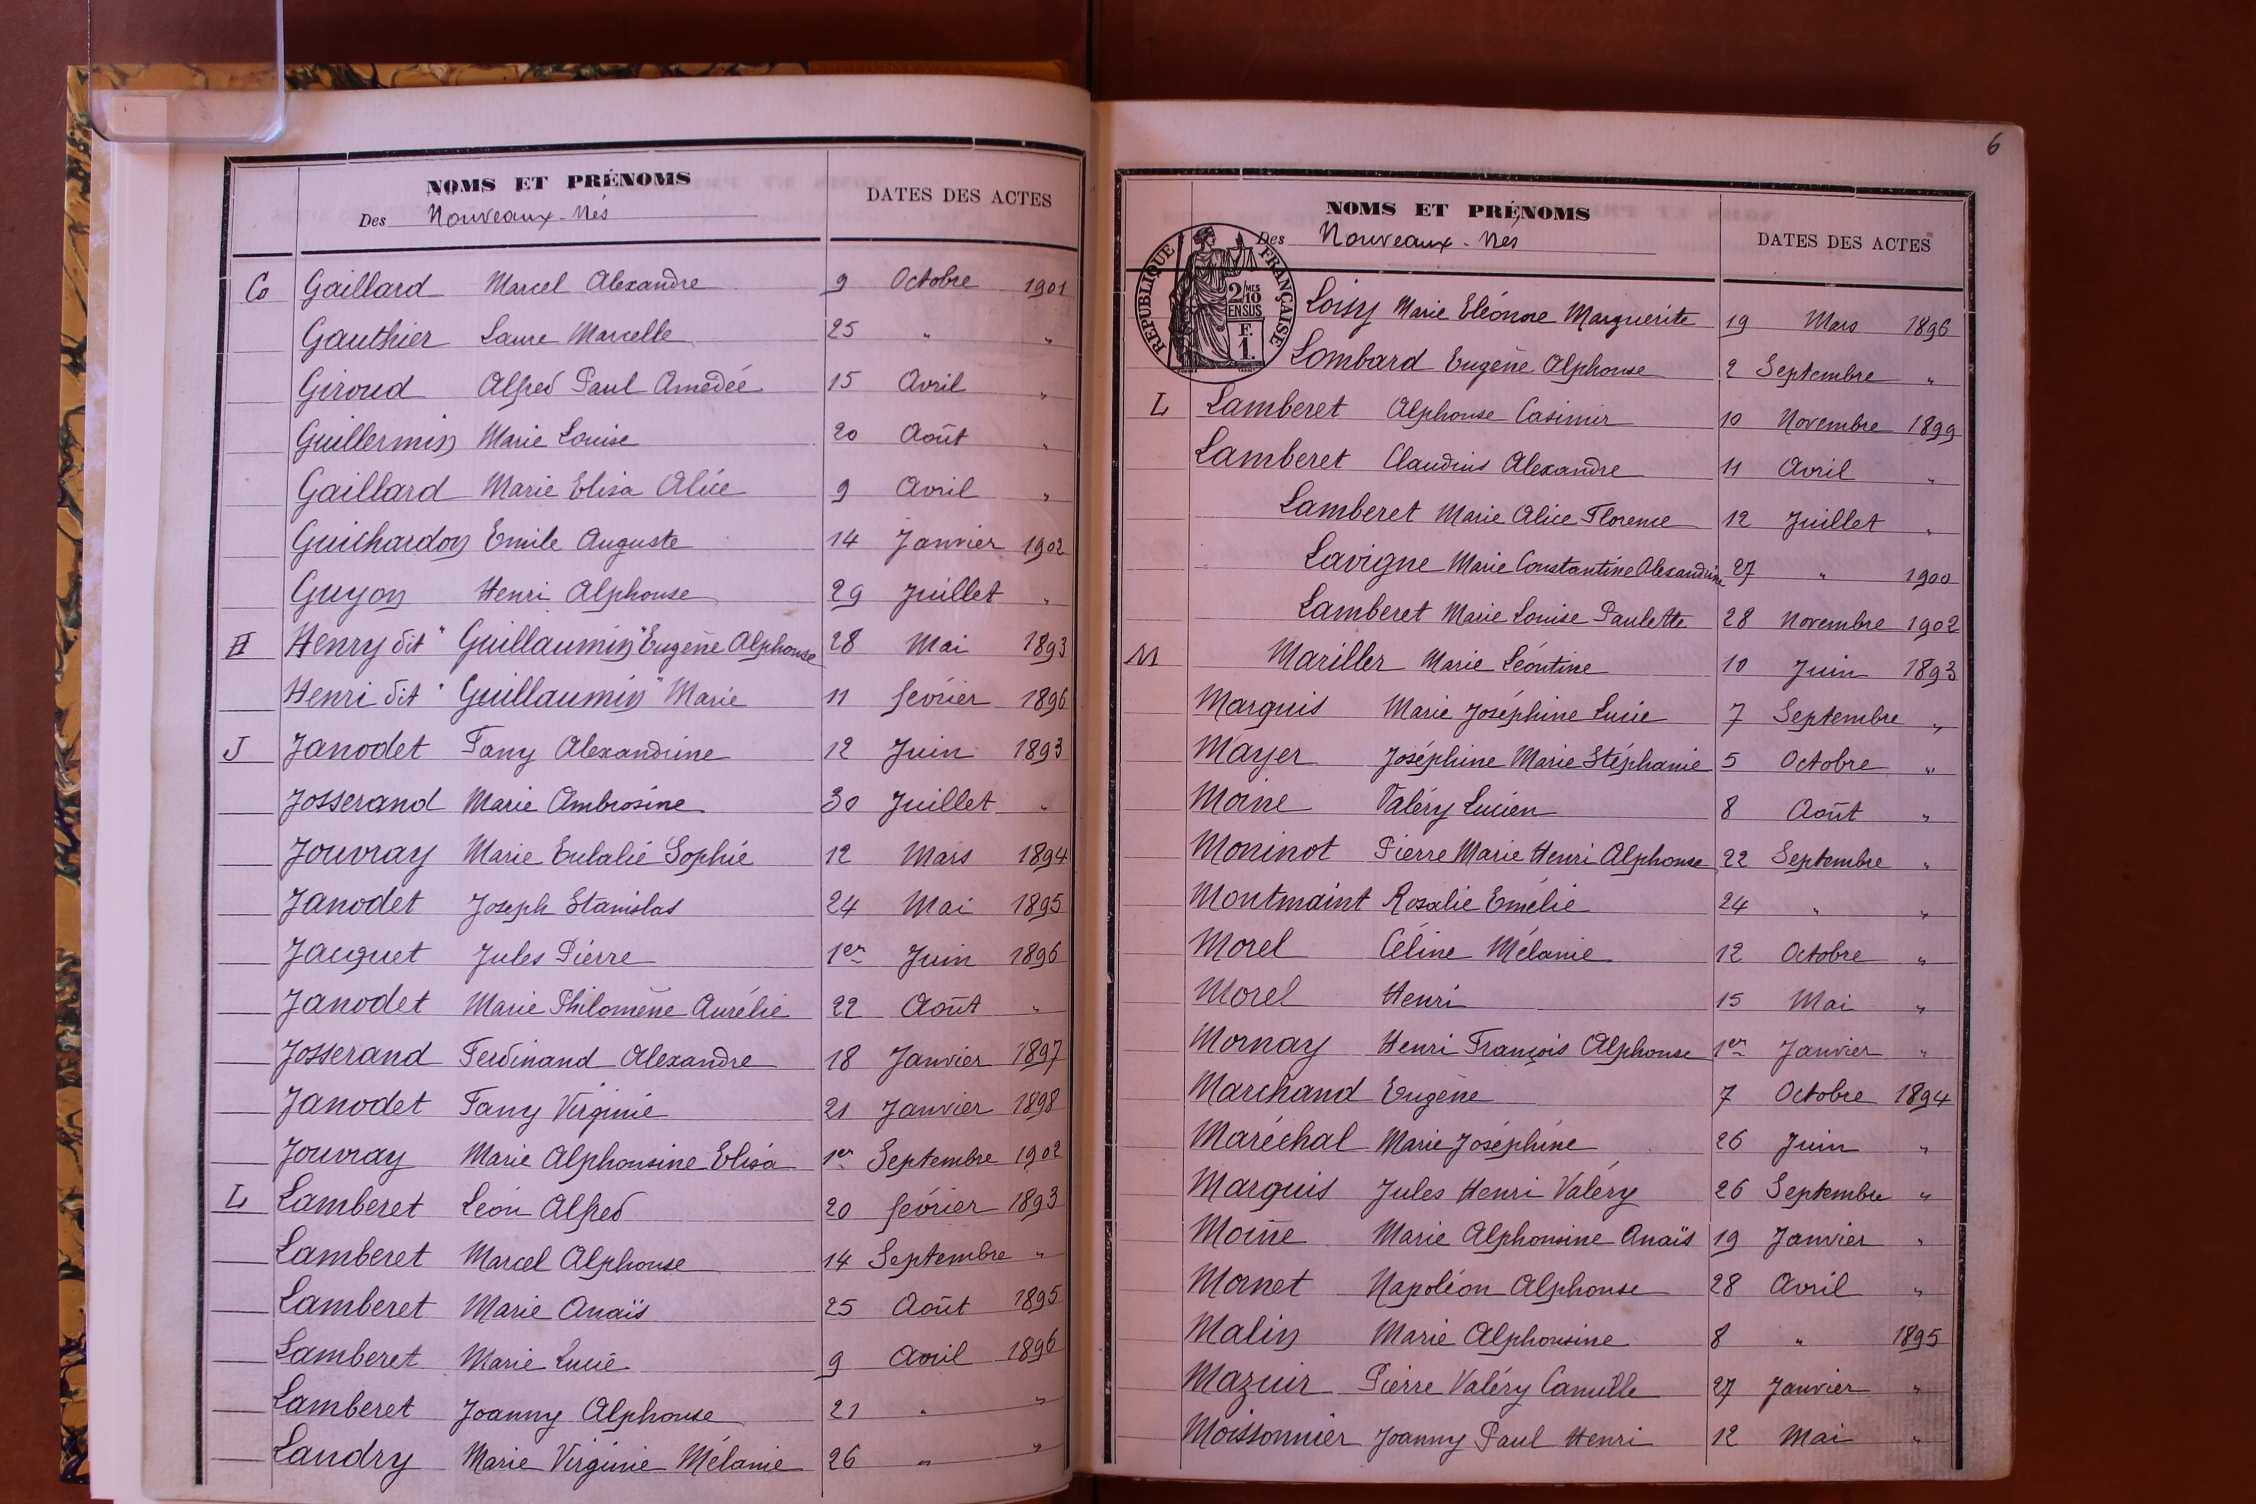 NOMS ET PRÉNOMS
Des Nouveaux-Nés
DATES DES ACTES
G Gaillard Marcel Alexandre 9 Octobre 1901
Gauthier Laure Marcelle 25 " "
Giroud Alfred Paul Amédée 15 Avril "
Guillermin Marie Louise 20 Août "
Gaillard Marie Elisa Alice 9 Avril "
Guichardon Emile Auguste 14 Janvier 1902
Guyon Henri Alphonse 29 Juillet "
H Henry dit "Guillaumin" Eugène Alphonse 28 Mai 1893
Henri dit "Guillaumin" Marie 11 février 1896
J Janodet Fany Alexandrine 12 Juin 1893
Josserand Marie Ambrosine 30 Juillet "
Jouvray Marie Eulalie Sophie 12 Mars 1894
Janodet Joseph Stanislas 24 Mai 1895
Jacquet Jules Pierre 1er Juin 1896
Janodet Marie Philomène Aurélie 22 Août "
Josserand Ferdinand Alexandre 18 Janvier 1897
Janodet Fany Virginie 21 Janvier 1898
Jouvray Marie Alphonsine Elisa 1er Septembre 1902
L Lamberet Léon Alfred 20 février 1893
Lamberet Marcel Alphonse 14 Septembre "
Lamberet Marie Anaïs 25 Août 1895
Lamberet Marie Lucie 9 Avril 1896
Lamberet Joanny Alphonse 21 " "
Landry Marie Virginie Mélanie 26 " "
6
NOMS ET PRÉNOMS
Des Nouveaux-Nés
DATES DES ACTES
RÉPUBLIQUE FRANÇAISE
2/10 MES
EN SUS
F.
1.
Loisy Marie Eléonore Marguerite 19 Mars 1896
Lombard Eugène Alphonse 2 Septembre "
L Lamberet Alphonse Casimir 10 Novembre 1899
Lamberet Claudius Alexandre 11 Avril "
Lamberet Marie Alice Florence 12 Juillet "
Lavigne Marie Constantine Alexandrine 27 " 1900
Lamberet Marie Louise Paulette 28 Novembre 1902
M Mariller Marie Léontine 10 Juin 1893
Marguis Marie Joséphine Lucie 7 Septembre "
Mayer Joséphine Marie Stéphanie 5 Octobre "
Moine Valéry Lucien 8 Août "
Moninot Pierre Marie Henri Alphonse 22 Septembre "
Montmaint Rosalie Emélie 24 " "
Morel Céline Mélanie 12 Octobre "
Morel Henri 15 Mai "
Mornay Henri François Alphonse 1er Janvier "
Marchand Eugène 7 Octobre 1894
Maréchal Marie Joséphine 26 Juin "
Marguis Jules Henri Valéry 26 Septembre "
Moine Marie Alphonsine Anaïs 19 Janvier "
Mornet Napoléon Alphonse 28 Avril "
Malin Marie Alphonsine 8 " 1895
Mazuir Pierre Valéry Camille 27 Janvier "
Moissonnier Joanny Paul Henri 12 Mai "